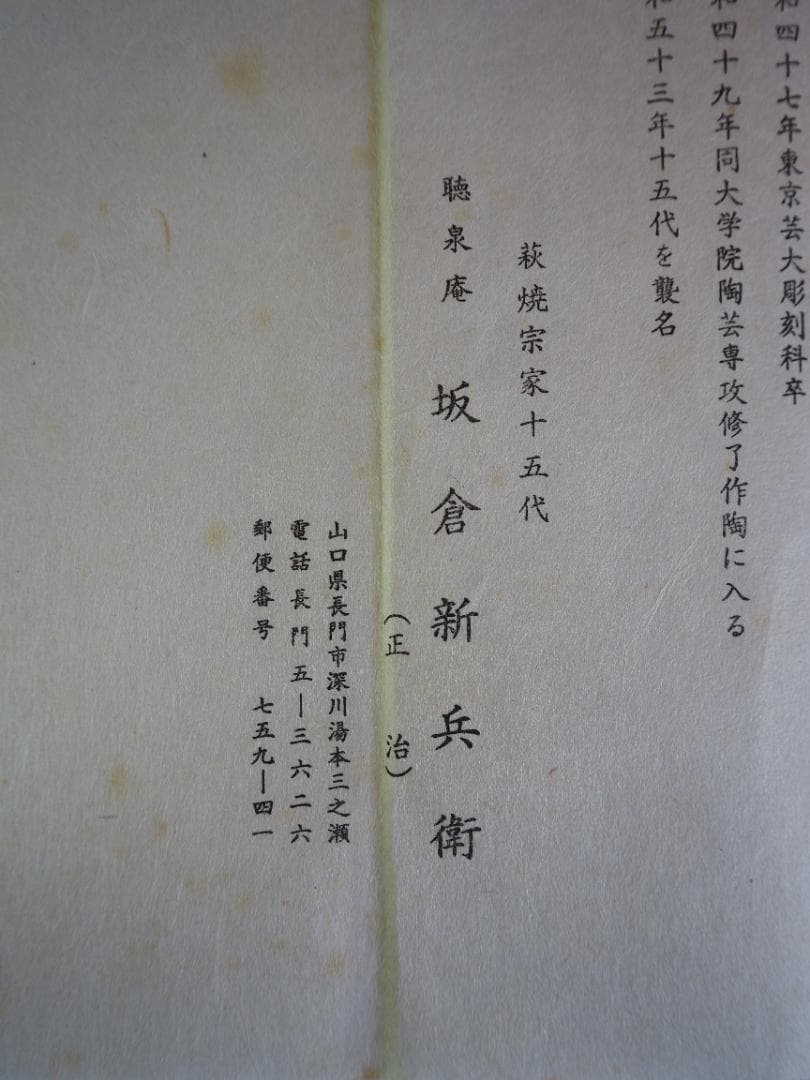 和四十七年東京芸大彫刻科卒
和四十九年同大学院陶芸専攻修了作陶に入る
和五十三年十五代を襲名
萩焼宗家十五代
聴泉庵 坂倉新兵衛
（正治）
山口県長門市深川湯本三之瀬
電話長門五―三六二六
郵便番号 七五九―四一